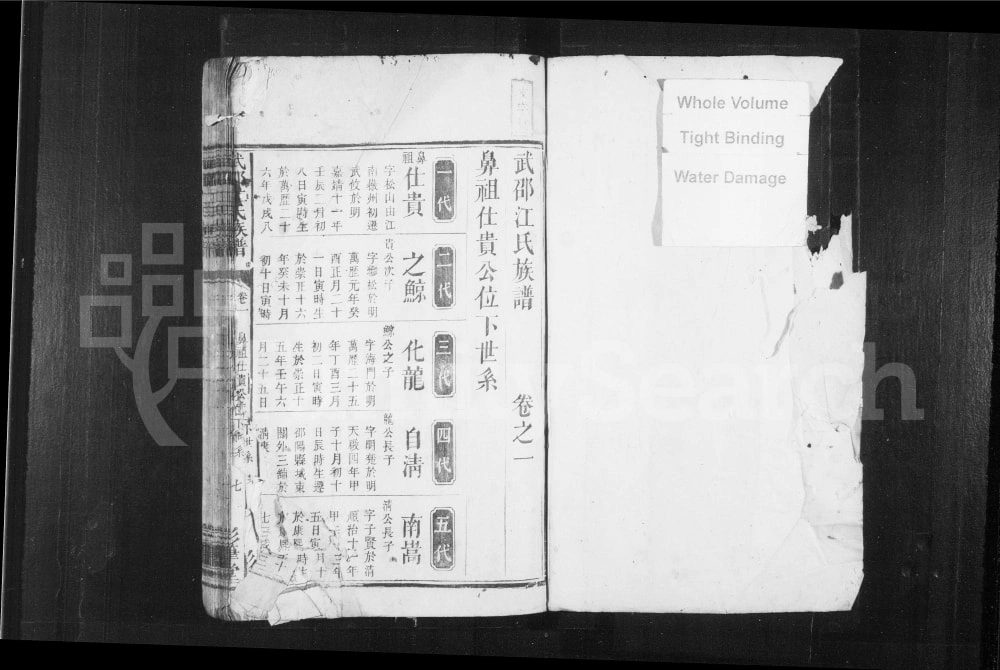 武邵江氏族譜 卷之一
鼻祖仕貴公位下世系
一代
鼻祖
仕貴
字松山由江
南徽州初遷
武攸於明
嘉靖十一年
壬辰二月初
八日寅時生
於萬歷二十
六年戊戌八
二代
貴公次子
之鯨
萬歷元年癸
酉正月二十
一日寅時生
於崇正十六
年癸未十月
初十日寅時
三代
鯨公之子
化龍
字海門於明
萬歷二十五
年丁酉三月
初二日寅時
生於崇正十
五年壬午六
月二十九日
四代
龍公長子
自清
天啟四年甲
子十月初十
日辰時生遷
邵陽縣城東
關外三
五代
清公長子
南嵩
字子賢於清
順治十一年
武邵江氏族譜
卷一
鼻祖仕貴公位下世系
七
Whole Volume
Tight Binding
Water Damage